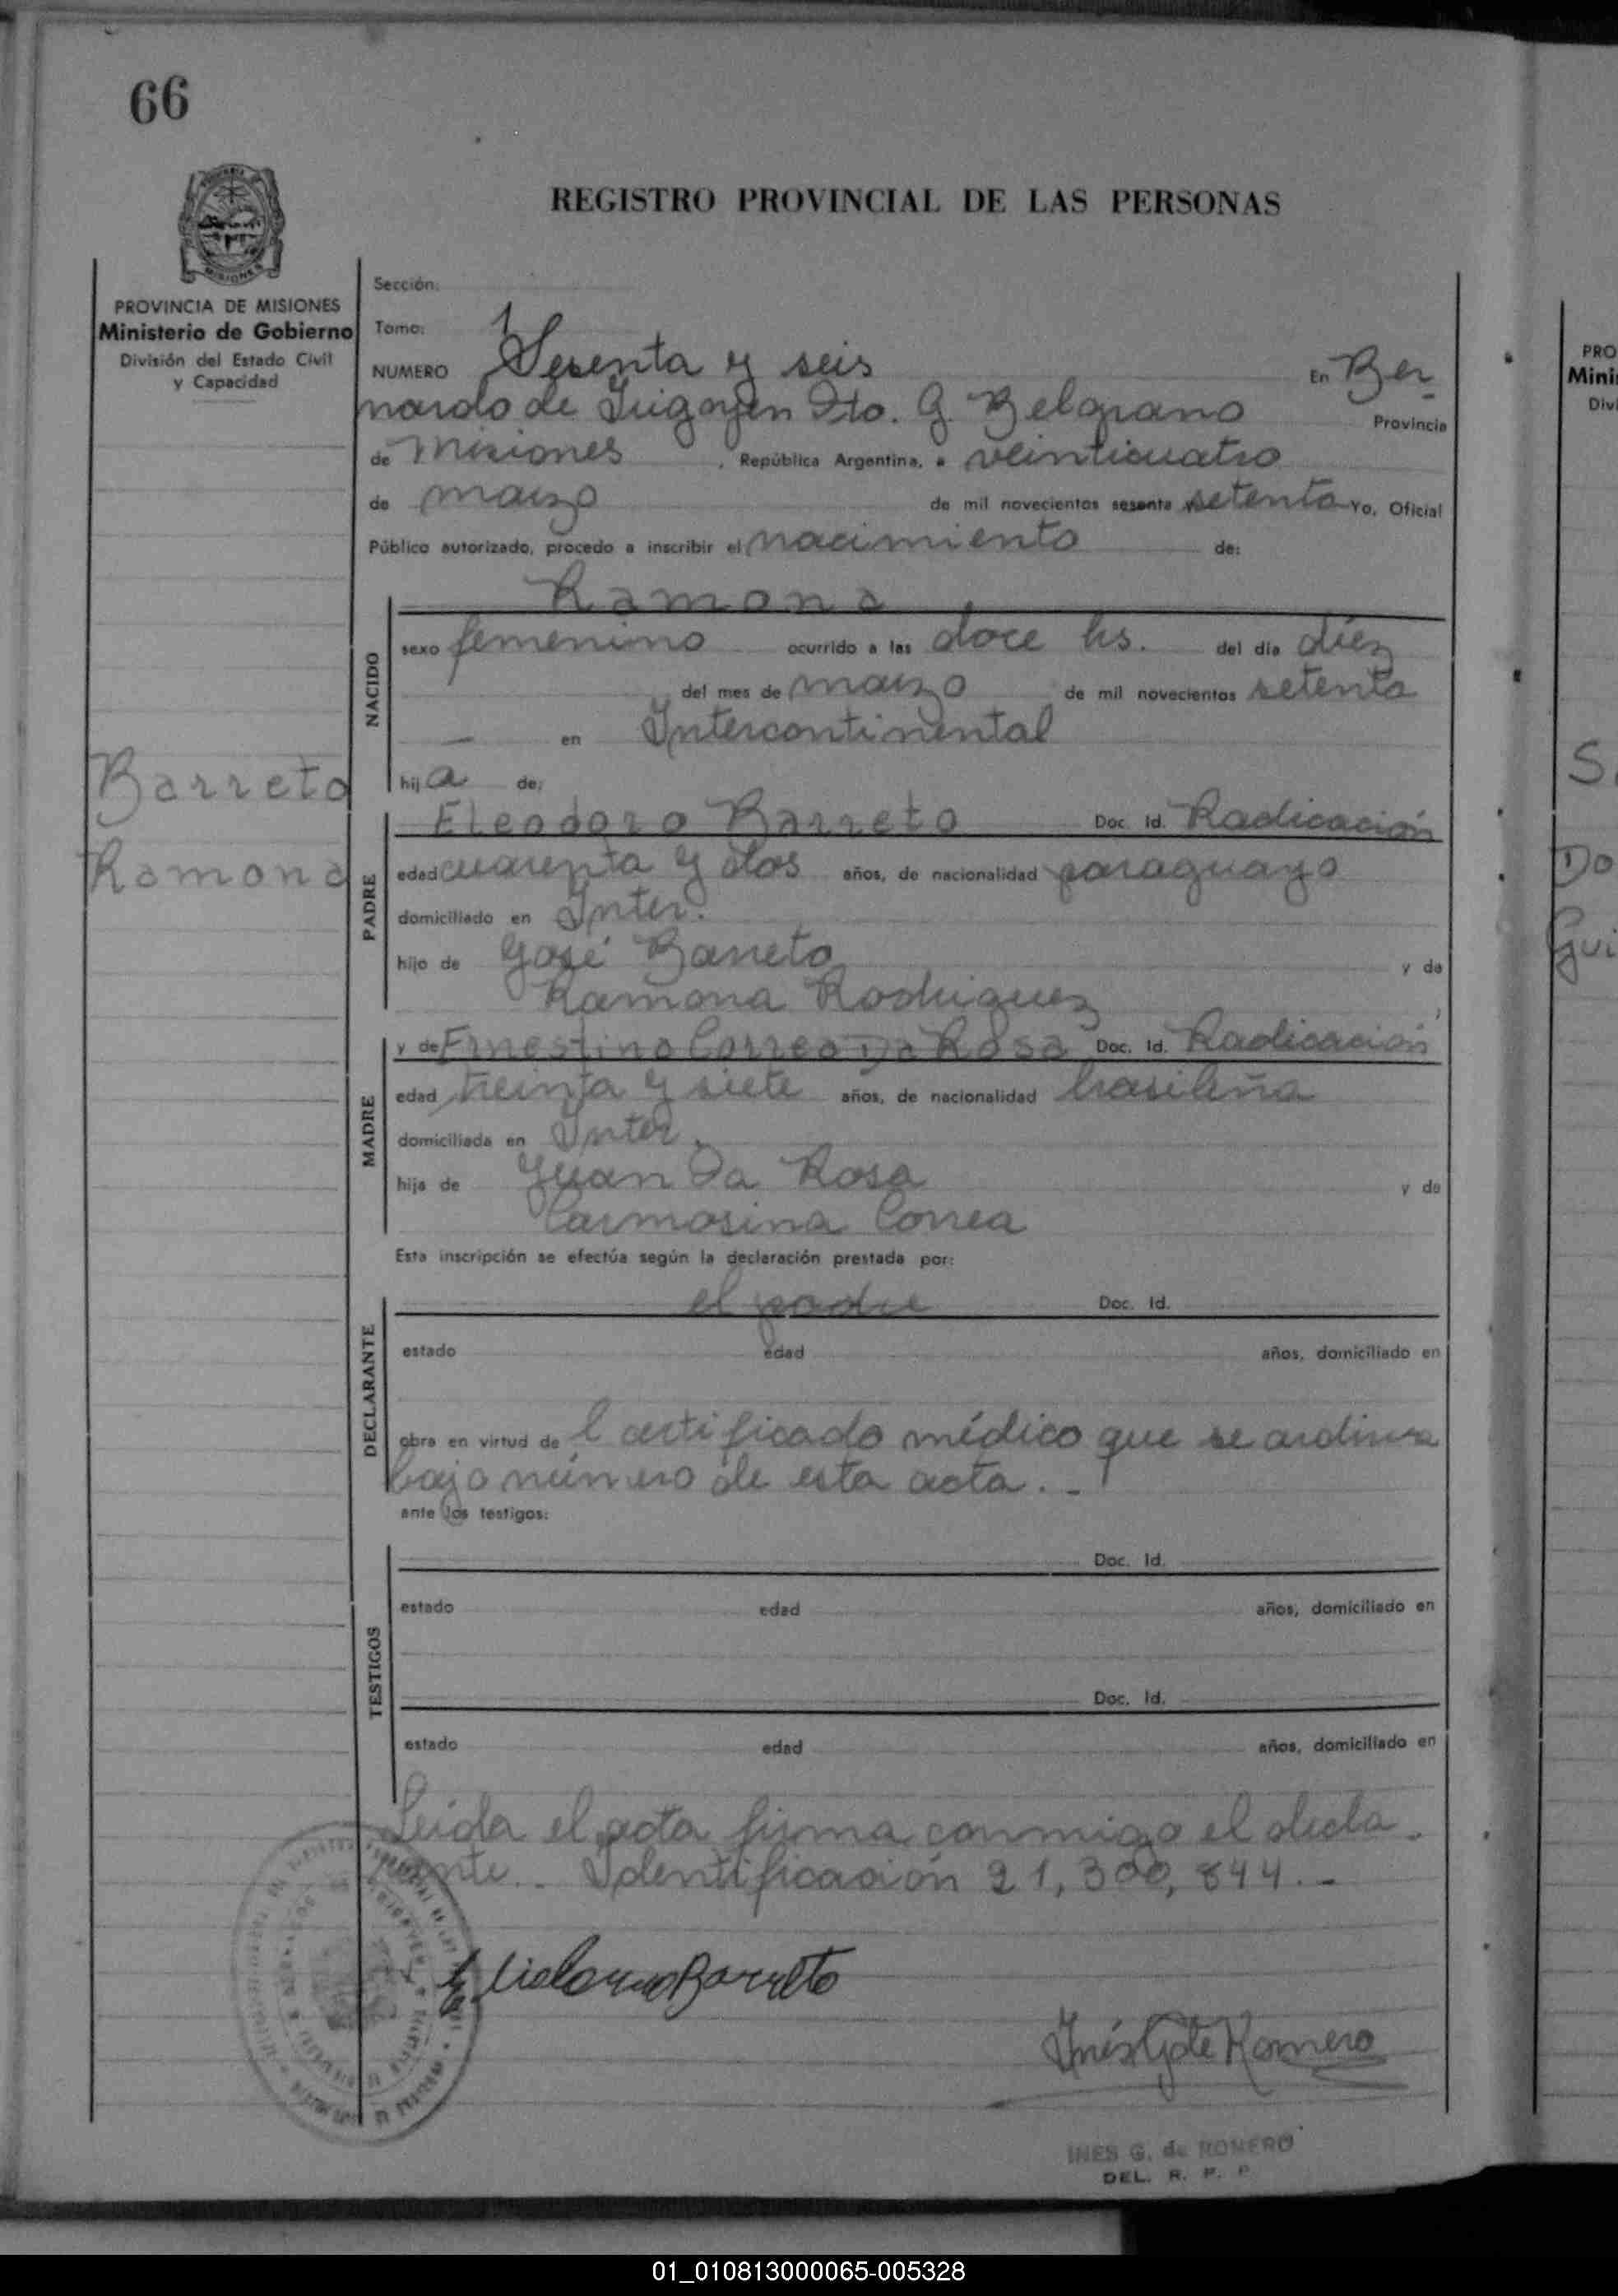 66
REGISTRO PROVINCIAL DE LAS PERSONAS
MISIONES
PROVINCIA DE MISIONES
Ministerio de Gobierno
División del Estado Civil
y Capacidad
Barreto
Ramona
Sección:
Tomo: 1
NUMERO Sesenta y seis En Ber
nardo de Irigoyen Dto. G. Belgrano Provincia
de Misiones , República Argentina, a veinticuatro
de marzo de mil novecientos sesenta y setenta Yo, Oficial
Público autorizado, procedo a inscribir el nacimiento de:
NACIDO
Ramona
sexo femenino ocurrido a las doce hs. del día diez
del mes de marzo de mil novecientos setenta
— en Intercontinental
hija de:
PADRE
Eleodoro Barreto Doc. Id. Radicación
edad cuarenta y dos años, de nacionalidad paraguayo
domiciliado en Inter.
hijo de José Barreto y de
Ramona Rodriguez
MADRE
y de Ernestina Correa Da Rosa Doc. Id. Radicación
edad treinta y siete años, de nacionalidad brasileña
domiciliada en Inter.
hija de Juan Da Rosa y de
Carmosina Correa
Esta inscripción se efectúa según la declaración prestada por:
DECLARANTE
el padre Doc. Id.
estado edad años, domiciliado en
obra en virtud del certificado médico que se archiva
bajo número de esta acta. -
ante los testigos:
TESTIGOS
Doc. Id.
estado edad años, domiciliado en
Doc. Id.
estado edad años, domiciliado en
Leída el acta firma conmigo el decla
rante.. Identificación 21,300,844.-
Barreto
Inés G de Romero
INES G. de ROMERO
DEL. R. P. P
PRO
Mini
Div
Do
Gui
01_010813000065-005328